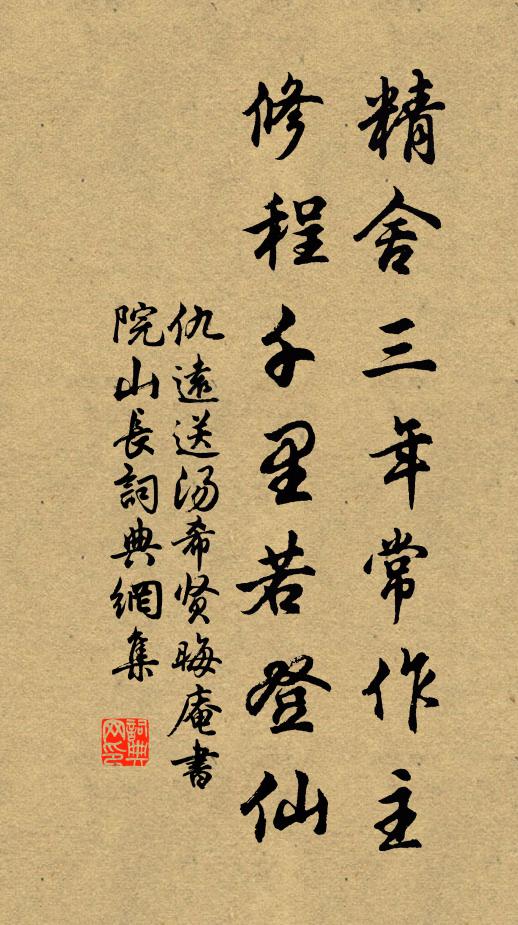 精舍三年常作主
修程千里若登仙
仇遠送汤希贤晦庵書
院山長詞典網集
詞典
网印